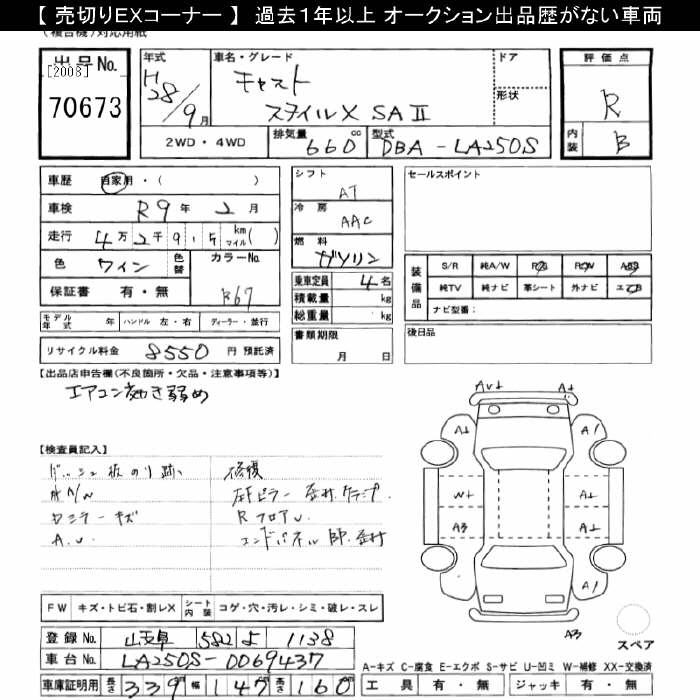 【 売切りEXコーナー 】 過去1年以上 オークション出品歴がない車両
(複合機)対応用紙
出品No.
[2008]
70673
年式
H28/9月
車名・グレード
キャスト
スタイルX SAⅡ
ドア
形状
評価点
R
内装
B
2WD・4WD
排気量 660 cc
型式 DBA-LA250S
車歴 自家用・( )
車検 R9年2月
走行 4万2千9.15 km マイル( )
色 ワイン
色替
カラーNo. R67
保証書 有・無
モデル年式 年 ハンドル 左・右 ディーラー・並行
リサイクル料金 8550 円 預託済
シフト
AT
冷房
AAC
燃料
ガソリン
乗車定員 4名
積載量 kg
総重量 kg
書類期限
月 日
セールスポイント
装備品
S/R 純A/W PS PW ABS
純TV 純ナビ 革シート 外ナビ エアB
ナビ型番:
後日品
【出品店申告欄(不良箇所・欠品・注意事項等)】
エアコン効き弱め
【検査員記入】
ダッシュ板のり跡
カシラーキズ
A.U
修復
Rフロアu
エンドパネル 部.歪材
FW キズ・トビ石・割レX シート内装 コゲ・穴・汚レ・シミ・破レ・スレ
AU1 A1
A1 A1
W1 A1
A3 A1
A1
A3
スペア
登録No. 岐阜 582 よ 1138
車台No. LA250S-0069437
車庫証明用 長さ 339 幅 147 高さ 160
A-キズ C-腐食 E-エクボ S-サビ U-凹ミ W-補修 XX-交換済
工具 有・無 ジャッキ 有・無